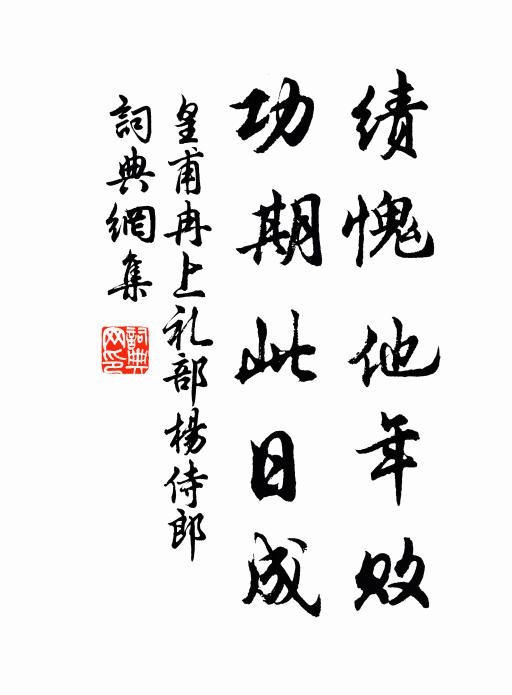 績愧他年敗
功期此日成
皇甫冉上礼部楊侍郎
詞典網集
詞典
网印